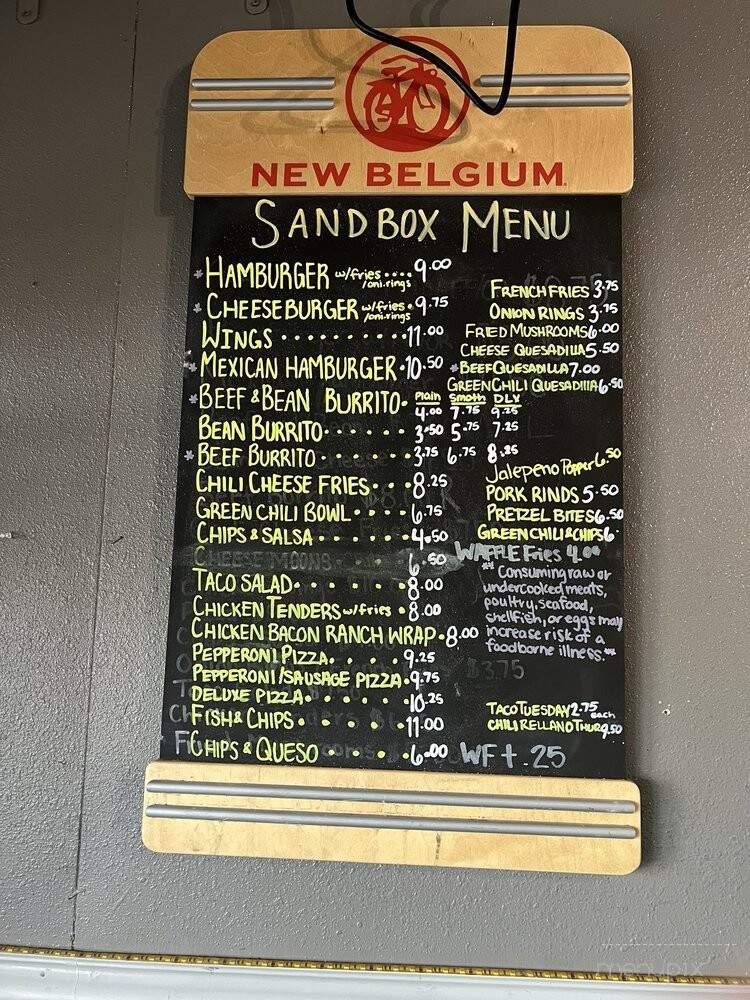 NEW BELGIUM
SANDBOX MENU
* HAMBURGER w/fries /oni.rings .... 9.00
* CHEESEBURGER w/fries /oni.rings . 9.75
WINGS ........ 11.00
* MEXICAN HAMBURGER . 10.50
* BEEF & BEAN BURRITO . Plain Smoth DLX
4.00 7.75 9.25
BEAN BURRITO ...... 3.50 5.75 7.25
* BEEF BURRITO ...... 3.75 6.75 8.25
CHILI CHEESE FRIES ... 8.25
GREEN CHILI BOWL .... 6.75
CHIPS & SALSA ...... 4.50
CHEESE MOONS .... 6.50
TACO SALAD ...... 8.00
CHICKEN TENDERS w/fries . 8.00
CHICKEN BACON RANCH WRAP . 8.00
PEPPERONI PIZZA ..... 9.25
PEPPERONI/SAUSAGE PIZZA . 9.75
DELUXE PIZZA ...... 10.25
FISH & CHIPS ...... 11.00
CHIPS & QUESO ..... 6.00 WF + .25
FRENCH FRIES 3.75
ONION RINGS 3.75
FRIED MUSHROOMS 6.00
CHEESE QUESADILLA 5.50
* BEEF QUESADILLA 7.00
GREEN CHILI QUESADILLA 6.50
Jalepeno Popper 6.50
PORK RINDS 5.50
PRETZEL BITES 6.50
GREEN CHILI & CHIPS 6.
WAFFLE Fries 4.00
** Consuming raw or
undercooked meats,
poultry, seafood,
shellfish, or eggs may
increase risk of a
foodborne illness. **
$3.75
TACO TUESDAY 2.75 each
CHILI RELLANO THUR 9.50
menupix